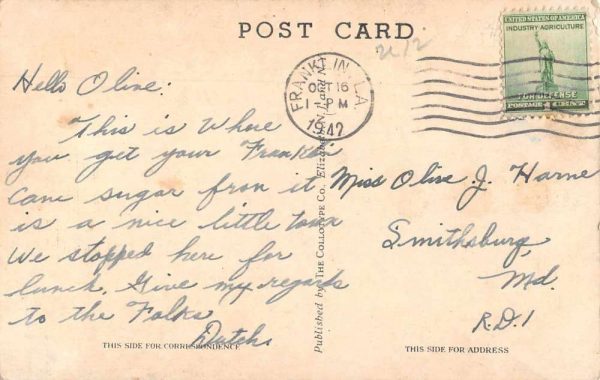 POST CARD
u/2
UNITED STATES OF AMERICA
INDUSTRY AGRICULTURE
FOR DEFENSE
POSTAGE 1 CENT
FRANKLIN, LA.
OCT 16
1 PM
1942
Hello Olive:
This is Where
you get your Franklin
Cane sugar from it
is a nice little town
We stopped here for
lunch. Give my regards
to the Folks
Dutch
Published by THE COLLOTYPE CO., Elizabeth, N. J. and N.
Miss Olive J. Harne
Smithsburg
Md.
R.D.1
THIS SIDE FOR CORRESPONDENCE
THIS SIDE FOR ADDRESS